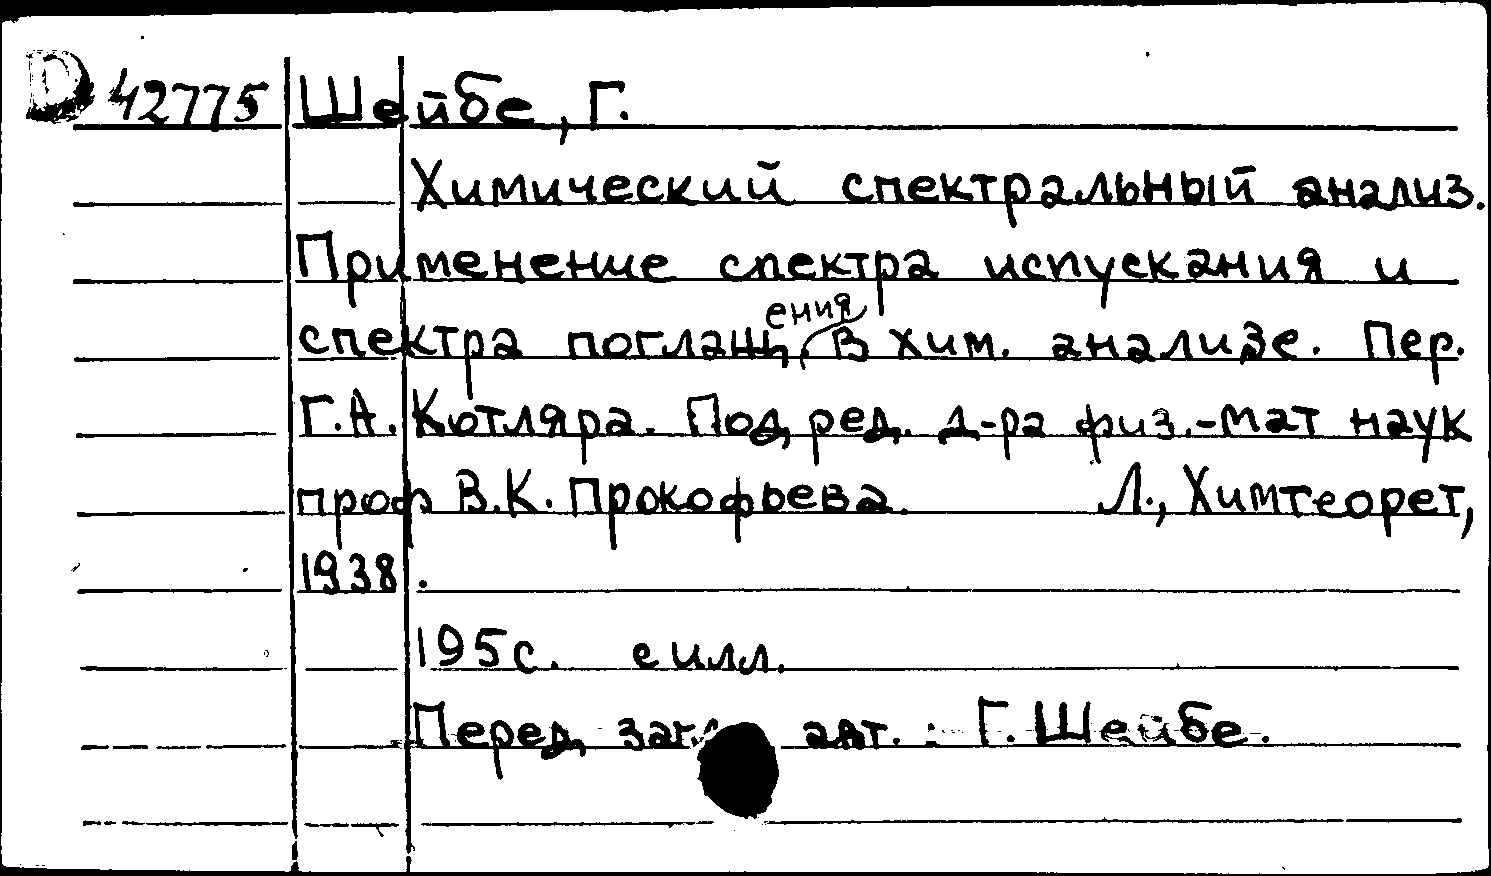 D 42775 Шейбе, Г.
Химический спектральный анализ.
Применение спектра испускания и
спектра поглащения в хим. анализе. Пер.
Г.А. Котляра. Под ред. д-ра физ.-мат наук
проф В.К. Прокофьева. Л., Химтеорет,
1938.
195с. с илл.
Перед загл. авт.: Г. Шейбе.